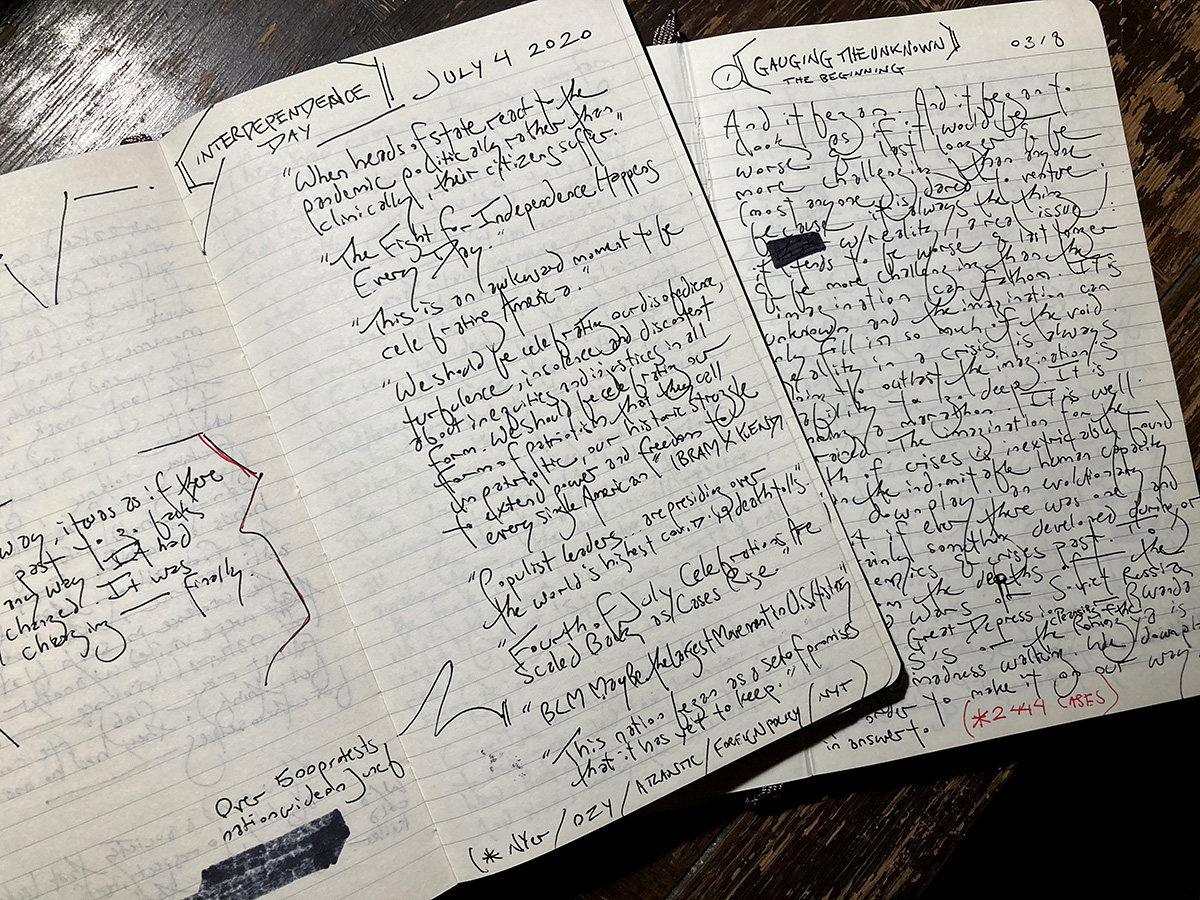 INTERDEPENDENCE
DAY
JULY 4 2020
"When heads of state react to the
pandemic politically rather than
clinically, their citizens suffer."
"The Fight for Independence Happens
Every Day."
"This is an awkward moment to be
celebrating America."
"We should be celebrating our disobedience,
turbulence, insolence and discontent
about inequities and injustices in all
form. We should be celebrating our
form of patriotism that they call
unpatriotic, our historic struggle
to extend power and freedom to
every single American" (IBRAM X KENDI)
"Populist leaders... are presiding over
the world's highest covid-19 death tolls."
"Fourth of July Celebrations Are
Scaled Back as Cases Rise"
"BLM May Be the Largest Movement in U.S. History"
"This nation began as a set of promises
that it has yet to keep."
(* NYer / OZY / ATLANTIC / FOREIGN POLICY / NYT)
way, it was as if there
past to go back
any way. It had
changed. It was
changing — finally.
Over 500 protests
nationwide on June 6
1 GAUGING THE UNKNOWN
THE BEGINNING
03/8
And it began. And it began to
look as if it would be
worse, last longer & be
more challenging than anyone
(most anyone) is dared to venture
because it is always the thing
w/reality, a real issue;
it tends to be worse & last longer
& be more challenging than the
imagination can fathom. It is
unknown and the imagination can
only fill in so much of the void.
reality in a crisis is always
to outlast the imagination's
ability to go deep. It is
a marathon. It is well
The imagination for the
of crises is inextricably bound
in the indomitable human capacity
downplay, an evolutionary
if ever there was one and
something developed during or
of crises past
the depths of the
Wars or Soviet Russia
Great Depression or
S/S or the Rwanda
madness
order to make it on our way
in answer to
(*2444 CASES)